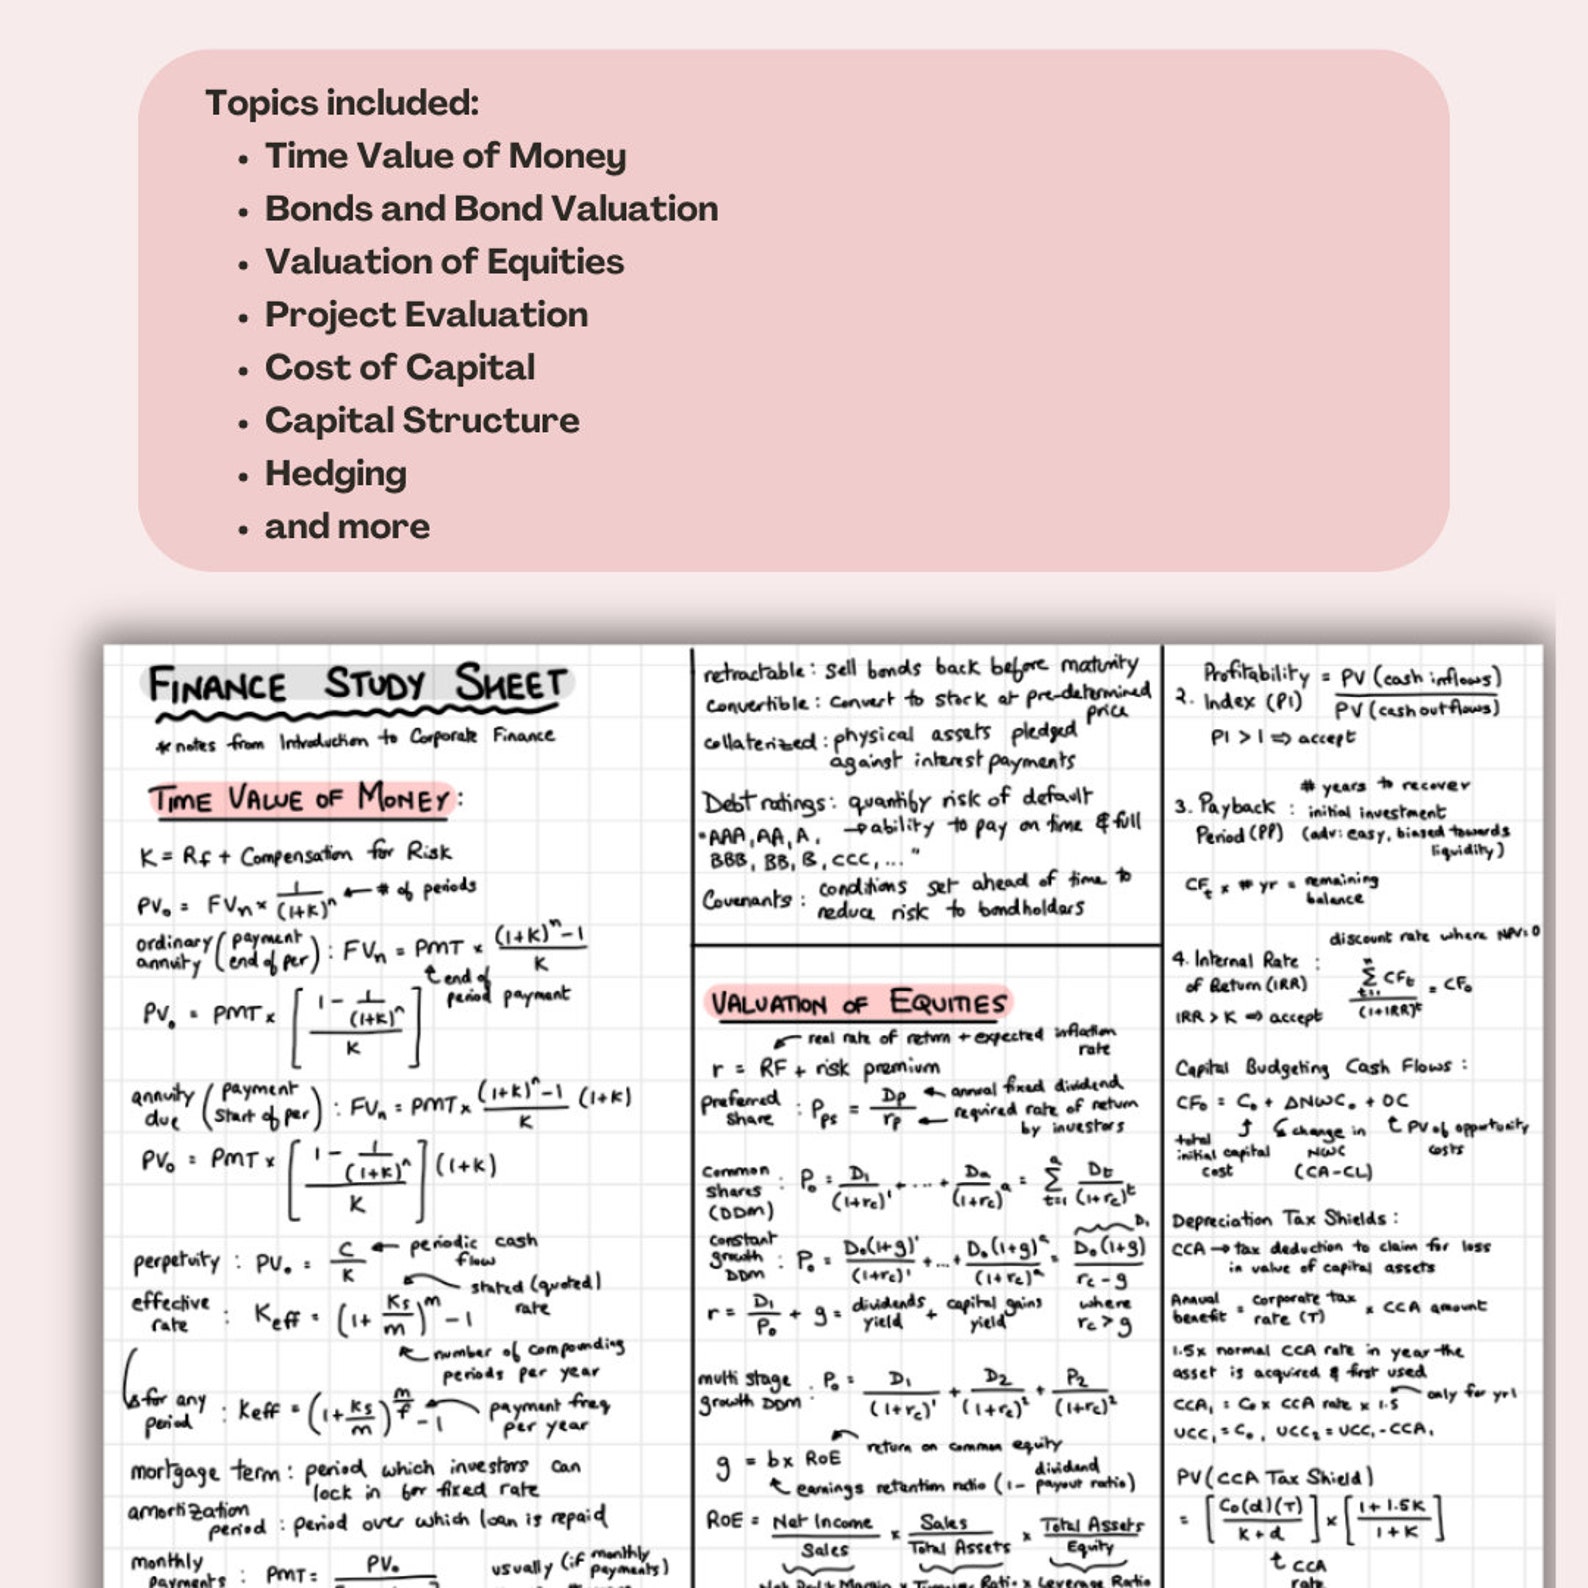 Topics included:
• Time Value of Money
• Bonds and Bond Valuation
• Valuation of Equities
• Project Evaluation
• Cost of Capital
• Capital Structure
• Hedging
• and more
FINANCE STUDY SHEET
* notes from Introduction to Corporate Finance
TIME VALUE OF MONEY:
K = RF + Compensation for Risk
PV₀ = FVn × 1/(1+K)^n ← # of periods
ordinary annuity (payment end of per) : FVn = PMT × ((1+K)^n − 1)/K
↑ end of period payment
PV₀ = PMT × [(1 − 1/(1+K)^n)/K]
annuity due (payment start of per) : FVn = PMT × ((1+K)^n − 1)/K (1+K)
PV₀ = PMT × [(1 − 1/(1+K)^n)/K] (1+K)
perpetuity : PV₀ = C/K ← periodic cash flow
effective rate : Keff = (1 + Ks/m)^m − 1
← stated (quoted) rate
↖ number of compounding periods per year
↳ for any period : Keff = (1 + Ks/m)^(m/f) − 1 ← payment freq per year
mortgage term : period which investors can
lock in for fixed rate
amortization period : period over which loan is repaid
monthly payments : PMT = PV₀
usually (if monthly payments)
retractable : sell bonds back before maturity
convertible : convert to stock at pre-determined
price
collaterized : physical assets pledged
against interest payments
Debt ratings : quantify risk of default
"AAA, AA, A, → ability to pay on time & full
BBB, BB, B, CCC, ..."
Covenants : conditions set ahead of time to
reduce risk to bondholders
VALUATION OF EQUITIES
↙ real rate of return + expected inflation rate
r = RF + risk premium
preferred share : Pps = Dp/rp
← annual fixed dividend
← required rate of return
by investors
Common Shares (DDM) : P₀ = D₁/(1+rc)^1 + ... + Da/(1+rc)^a = Σ(t=1 to a) Dt/(1+rc)^t
constant growth DDM : P₀ = D₀(1+g)^1/(1+rc)^1 + ... + D₀(1+g)^a/(1+rc)^a = D₀(1+g)/(rc − g)
D₁
r = D₁/P₀ + g = dividends yield + capital gains yield
where rc > g
multi stage growth DDM : P₀ = D₁/(1+rc)^1 + D₂/(1+rc)^2 + P₂/(1+rc)^2
g = b × ROE
↙ return on common equity
↖ earnings retention ratio (1 − dividend payout ratio)
ROE = Net Income/Sales × Sales/Total Assets × Total Assets/Equity
Leverage Ratio
2. Profitability Index (PI) = PV (cash inflows)/PV (cash outflows)
PI > 1 ⇒ accept
3. Payback Period (PP) : # years to recover
initial investment
(adv: easy, biased towards
liquidity)
CFt × # yr = remaining balance
discount rate where NPV=0
4. Internal Rate of Return (IRR) : Σ(t=1 to n) CFt/(1+IRR)^t = CF₀
IRR > K ⇒ accept
Capital Budgeting Cash Flows :
CF₀ = C₀ + ΔNWC₀ + OC
total initial capital cost
change in NWC (CA-CL)
PV of opportunity costs
Depreciation Tax Shields :
CCA → tax deduction to claim for loss
in value of capital assets
Annual benefit = corporate tax rate (T) × CCA amount
1.5x normal CCA rate in year the
asset is acquired & first used
CCA₁ = C₀ × CCA rate × 1.5 ← only for yr1
UCC₁ = C₀, UCC₂ = UCC₁ - CCA₁
PV (CCA Tax Shield)
= [C₀(d)(T)/(K + d)] × [(1 + 1.5K)/(1 + K)]
↑ CCA
rate